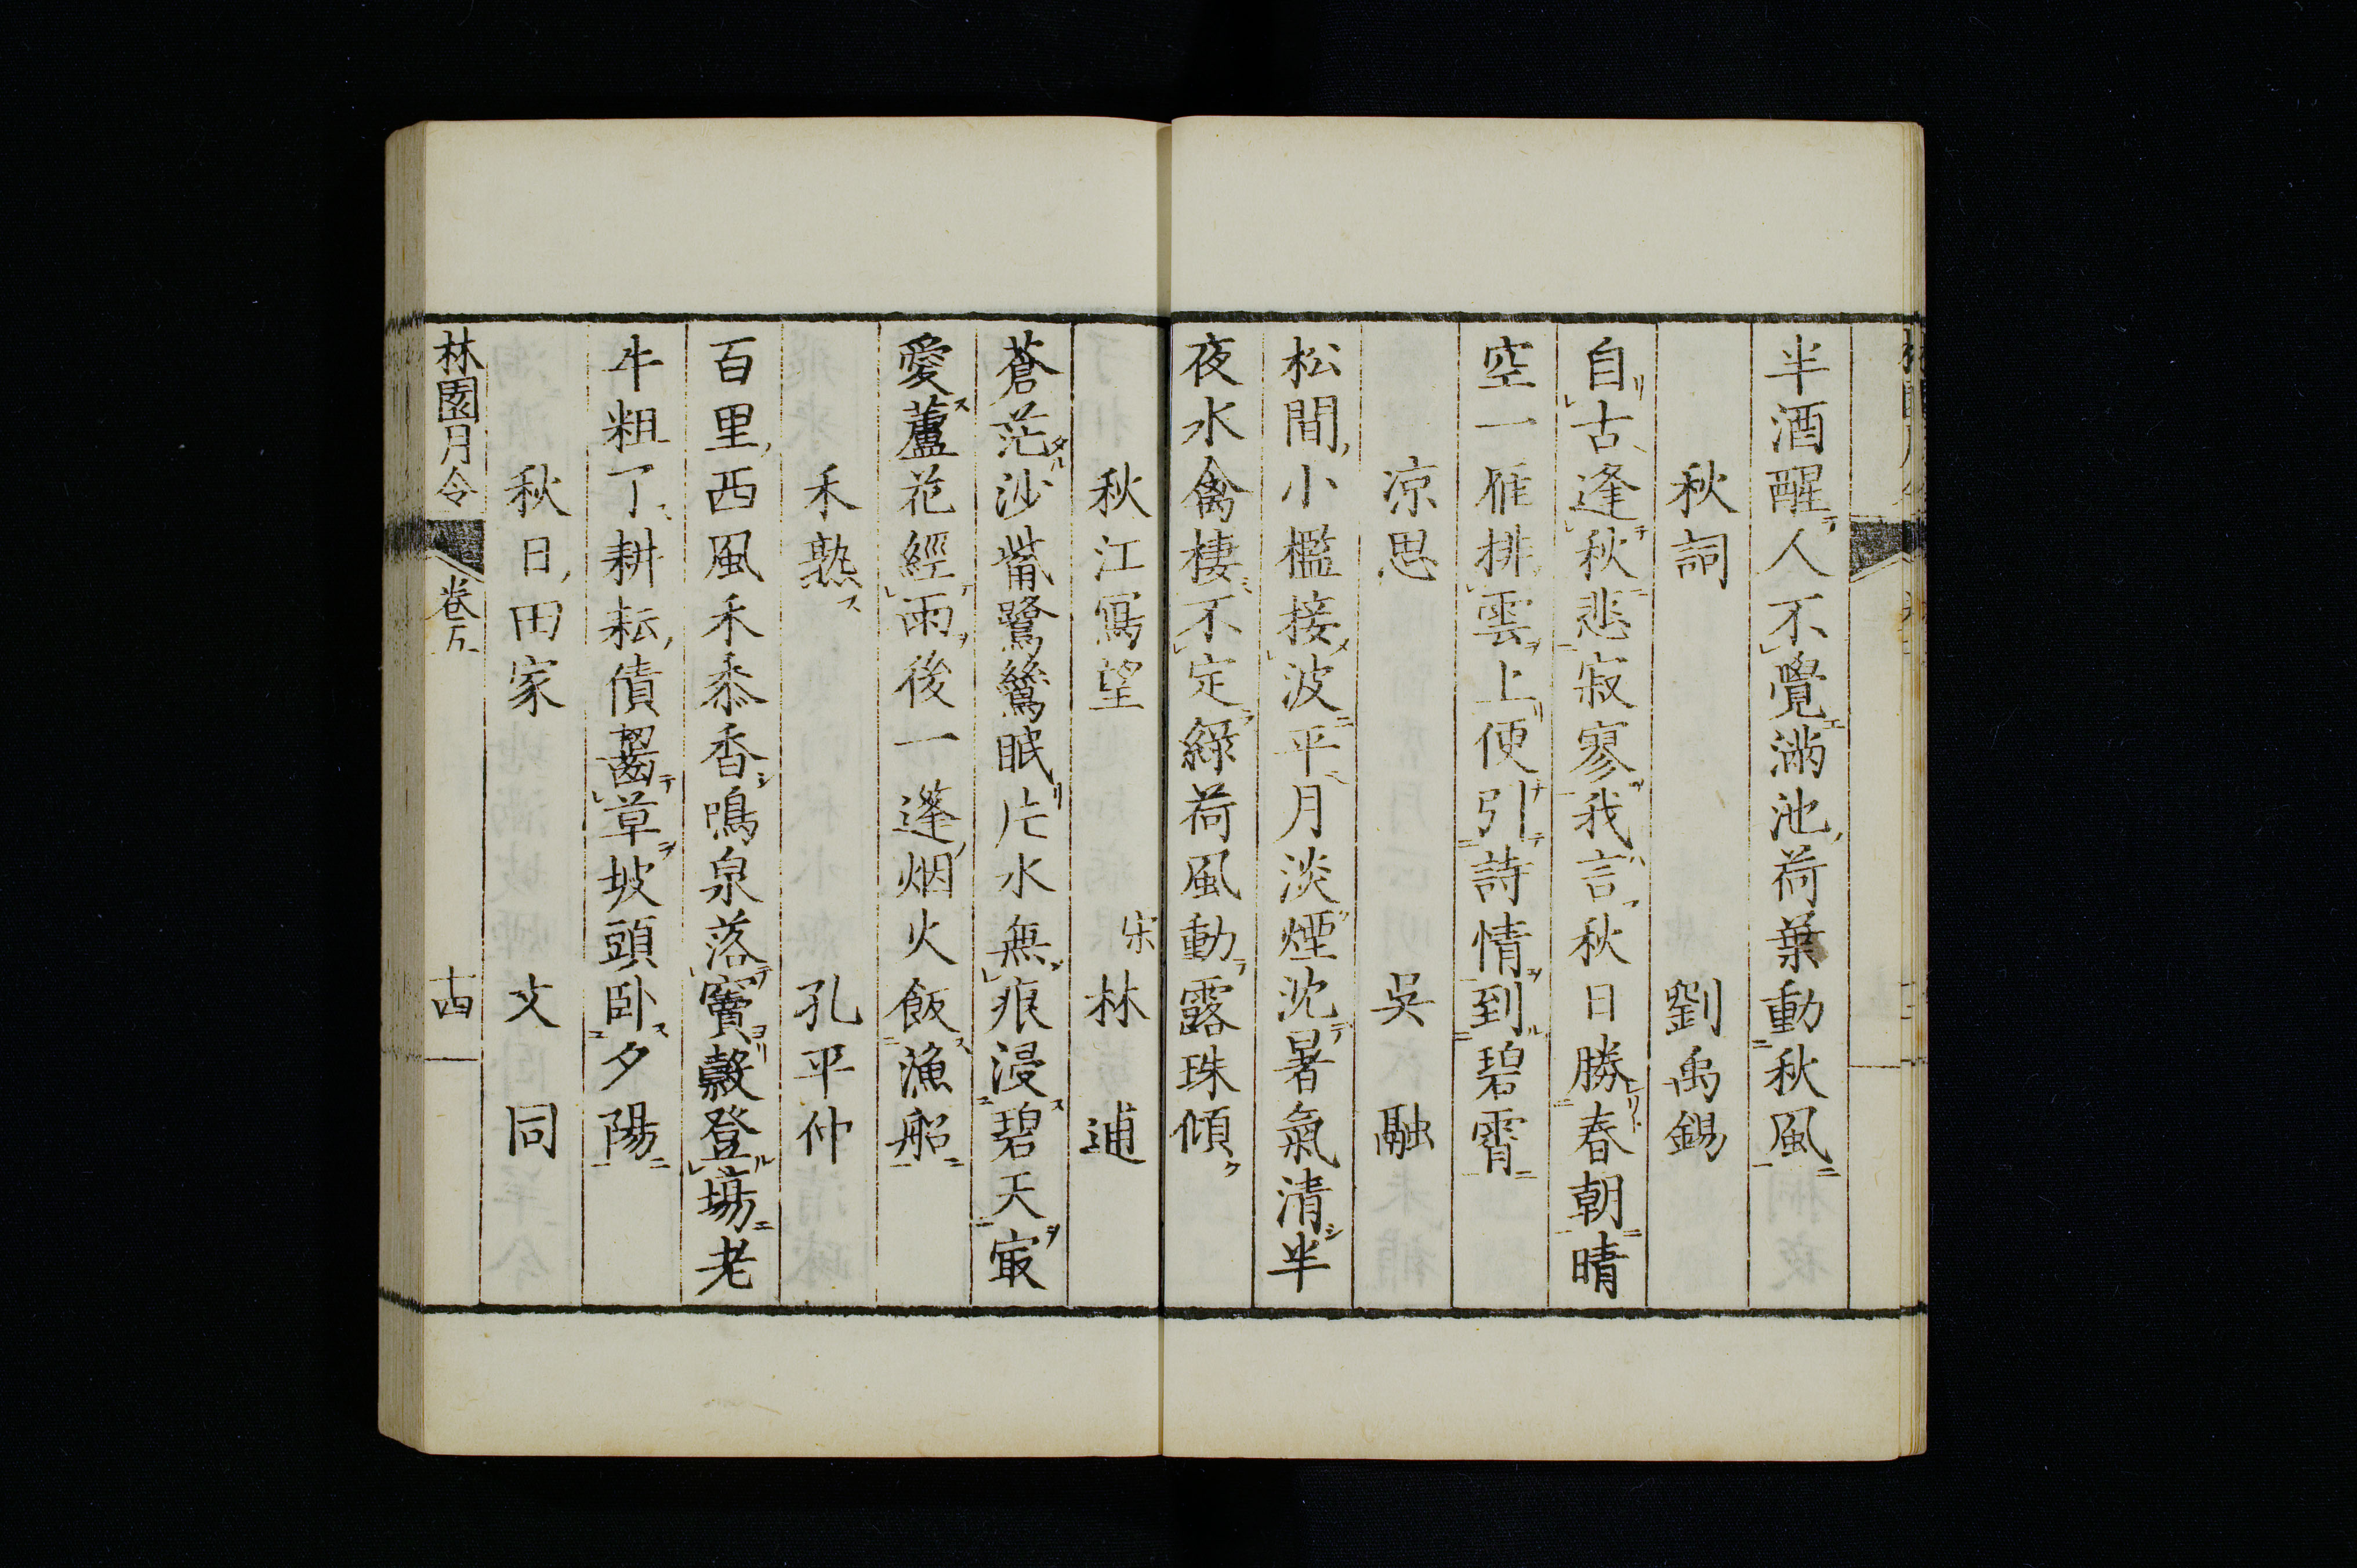 半酒醒人不覺滿池荷葉動秋風
秋詞 劉禹錫
自古逢秋悲寂寥我言秋日勝春朝晴
空一雁排雲上便引詩情到碧霄
凉思 吳融
松間小檻接波平月淡煙沈暑氣清半
夜水禽棲不定綠荷風動露珠傾
秋江寫望 宋林逋
蒼茫沙觜鷺鷥眠片水無痕浸碧天㝡
愛蘆花經雨後一篷烟火飯漁船
禾熟 孔平仲
百里西風禾黍香鳴泉落竇穀登場老
牛粗了耕耘債齧草坡頭卧夕陽
秋日田家 文同
林園月令 卷五 十四